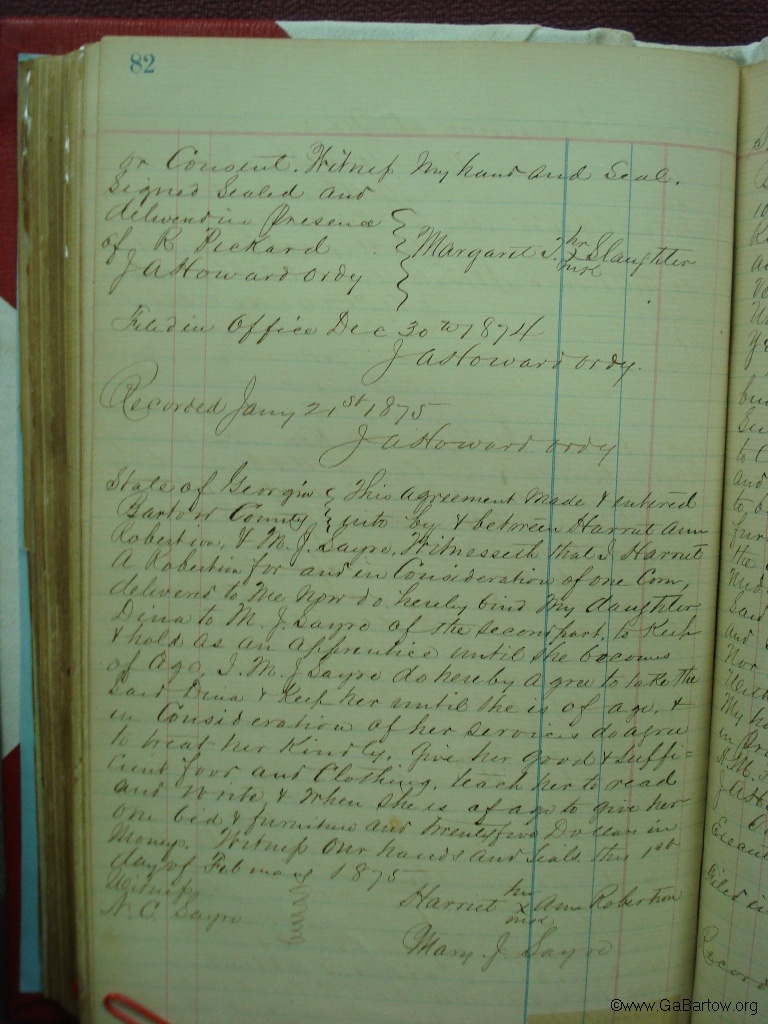 82
or Consent. Witness My hand and Seal.
Signed Sealed and
delivered in Presence
of R Pickard
J A Howard ordy
Margaret J. her x mrk Slaughter
Filed in Office Dec 30th 1874
J A Howard ordy.
Recorded Jany 21st 1875
J A Howard ordy
State of Georgia } This agreement made & entered
Bartow County } into by & between Harriet Ann
Robertson, & M. J. Sayre, Witnesseth that I Harriet
A Robertson for and in Consideration of one Corn,
deliverd to Me Now do hereby bind My daughter
Dina to M. J. Sayre of the second part, to Keep
& hold as an apprentice until she becomes
of Age, I. M. J Sayre do hereby agree to take the
Said Dina & Keep her until she is of age, &
in Consideration of her services do agree
to treat her Kindly, Give her Good & suffi=
cient food and Clothing, teach her to read
and write, & When she is of age to give her
one bed & furniture and twentyfive Dollars in
Money. Witness Our hands and Seals this 1st
day of Febuary 1875
Witness
N. C. Sayre
Harriet her x mrk Ann Robertson
Mary. J. Sayre
©www.GaBartow.org